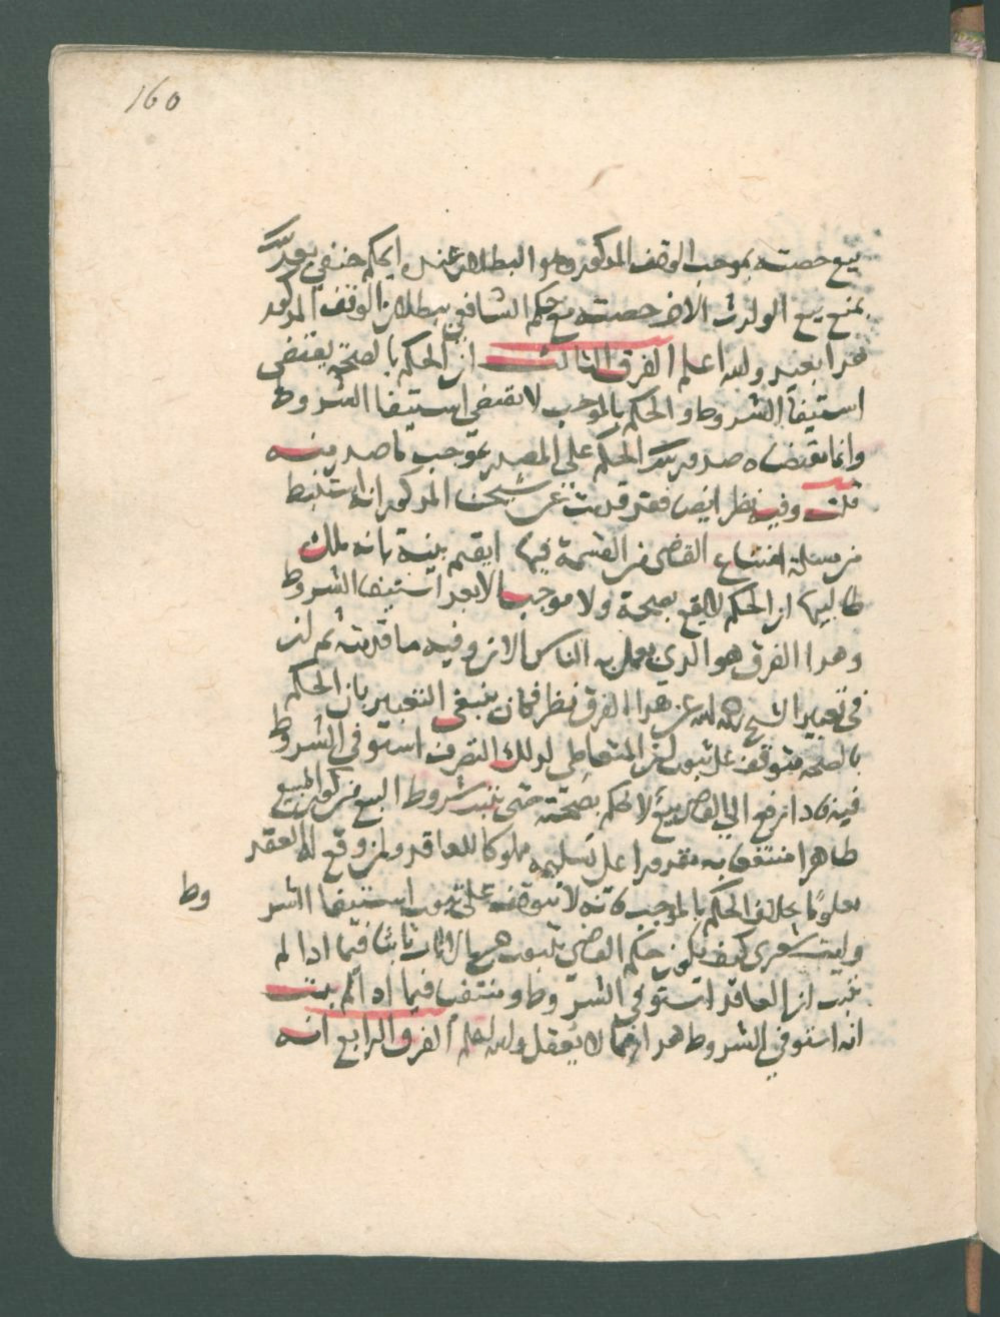 160
بيع حصته بموجب الوقف المذكور وهو البطلان عنده ايحكم حنفي بعد ذلك
بمنع بيع الولد الاخر حصته مع حكم الشافعي ببطلان الوقف المذكور
هذا بعيد والله اعلم الفرق الثالث ان الحكم بالصحة يقتضي
استيفا الشروط والحكم بالموجب لا يقتضي استيفا الشروط
وانما مقتضاه صدور الحكم على المصدر بموجب ما صدر منه
قلت وفيه نظر ايضا فقد قدمت عن شيخنا المذكور انه استنبط
من مسئلة امتناع القاضي من القسمة فيما لم يقم بينة بانه ملك
طالبيها ان الحكم لا يقع بصحة ولا موجب الا بعد استيفا الشروط
وهذا الفرق هو الذي يعمل به الناس الان وفيه ما قدمته ثم ان
في تعبير الشيخ رحمه الله عن هذا الفرق نظر فكان ينبغي التعبير بان الحكم
بالصحة متوقف على ثبوت ان المتعاطي لذلك التصرف استوفي الشروط
فيه فاذا رفع الي القاضي بيع لا يحكم بصحته حتى يثبت شروط البيع من كون المبيع
طاهرا منتفعا به مقدورا على تسليمه مملوكا للعاقد ولمن وقع له العقد
معلوما بخلاف الحكم بالموجب فانه لا يتوقف على ثبوت استيفا الشر
وط
وليت شعري كيف يكون حكم القاضي بثبوت ثابتا فيما اذا لم
يثبت ان العاقد استوفي الشروط ومنتف فيما اذا لم يثبت
انه استوفي الشروط هذا مما لا يعقل والله اعلم الفرق الرابع انه